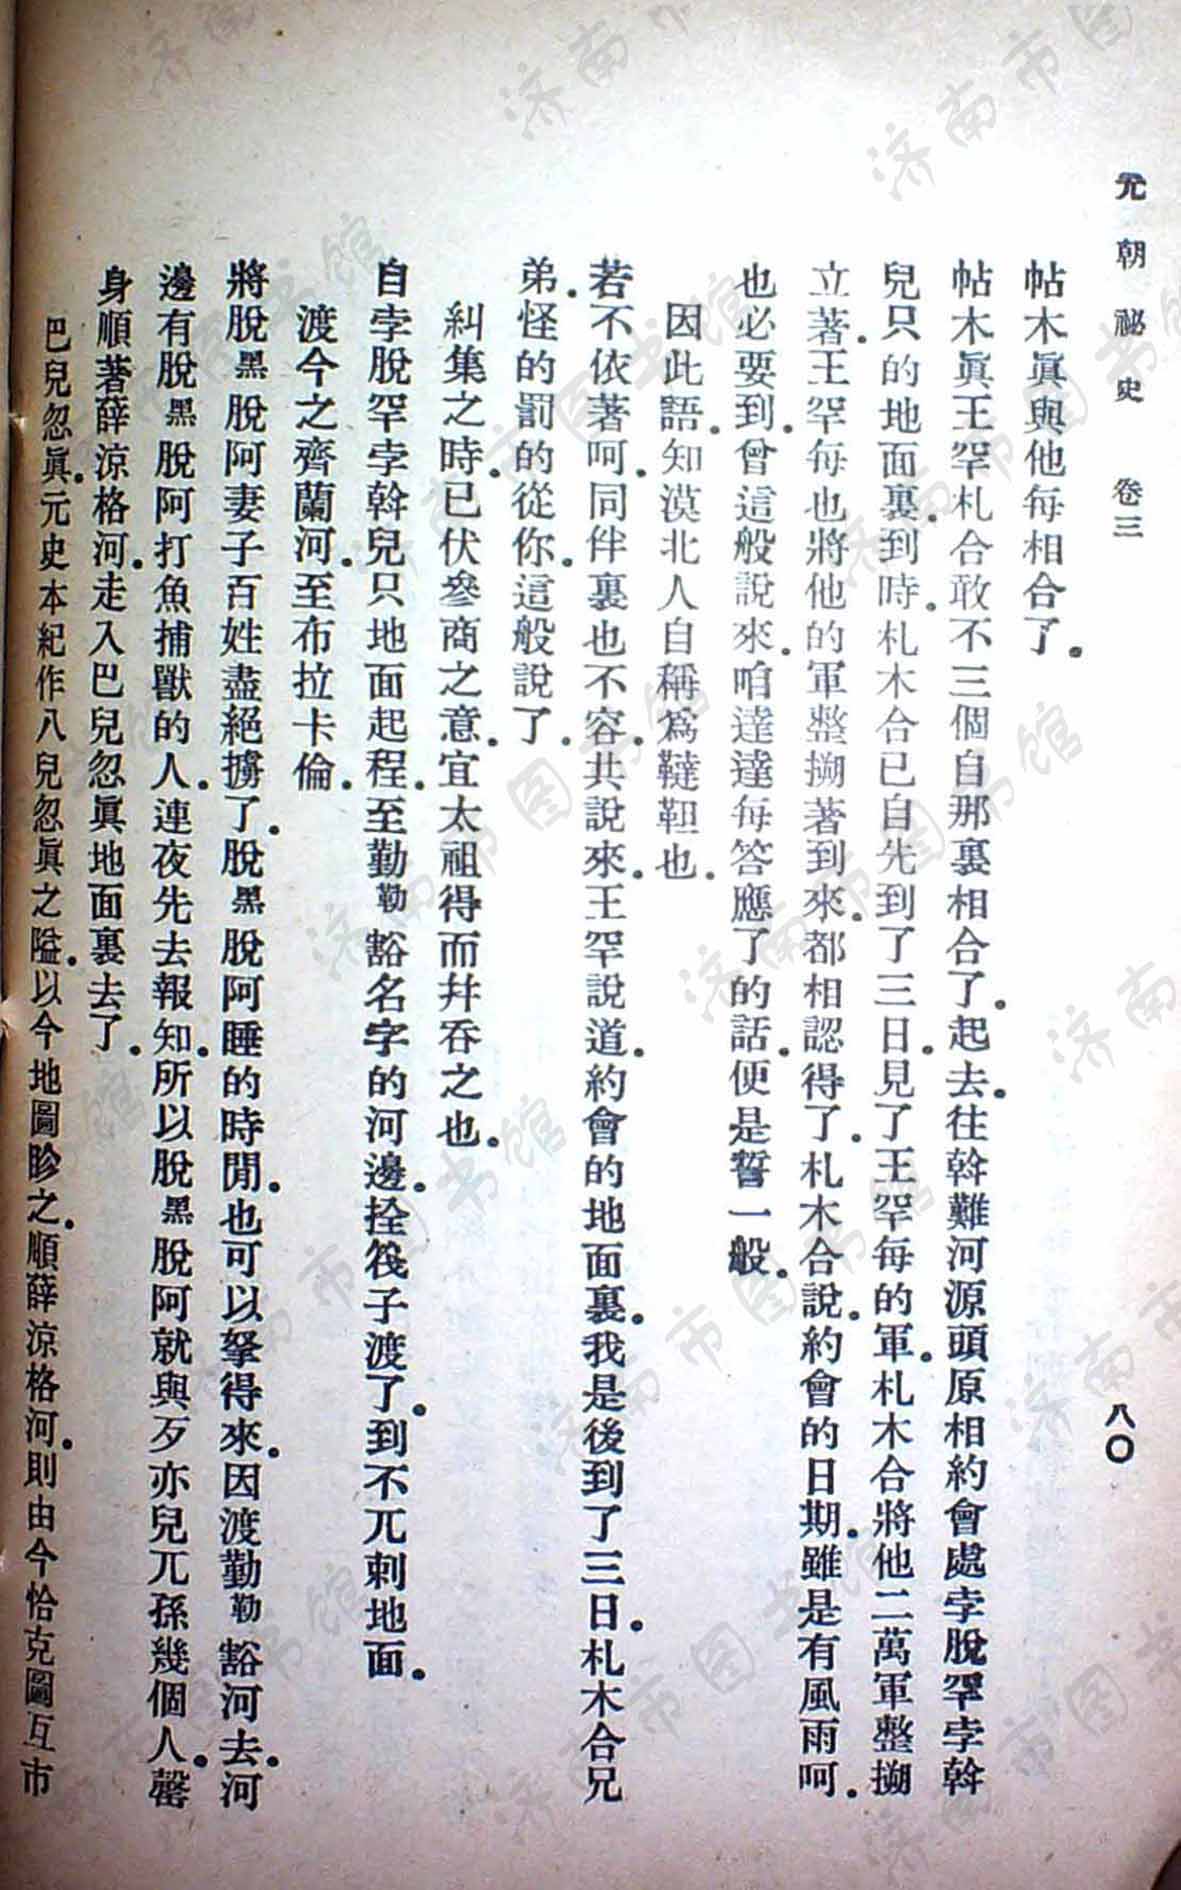 元朝祕史 卷三 八〇
帖木眞與他每相合了。
帖木眞王罕札合敢不三個自那裏相合了。起去。往斡難河源頭原相約會處孛脫罕孛斡
兒只的地面裏。到時。札木合已自先到了三日。見了王罕每的軍。札木合將他二萬軍整搠
立著。王罕每也將他的軍整搠著到來。都相認得了。札木合說。約會的日期。雖是有風雨呵。
也必要到。曾這般說來。咱達達每答應了的話。便是誓一般。
因此語。知漠北人自稱爲韃靼也。
若不依著呵。同伴裏也不容。共說來。王罕說道。約會的地面裏。我是後到了三日。札木合兄
弟。怪的罰的從你。這般說了。
糾集之時。已伏參商之意。宜太祖得而幷吞之也。
自孛脫罕孛斡兒只地面起程。至勤勒豁名字的河邊。拴筏子渡了。到不兀剌地面。
渡今之齊蘭河。至布拉卡倫。
將脫黑脫阿妻子百姓盡絕擄了。脫黑脫阿睡的時閒。也可以拏得來。因渡勤勒豁河去。河
邊有脫黑脫阿打魚捕獸的人。連夜先去報知。所以脫黑脫阿就與歹亦兒兀孫幾個人。罄
身順著薛涼格河。走入巴兒忽眞地面裏去了。
巴兒忽眞。元史本紀作八兒忽眞之隘。以今地圖眕之。順薛涼格河。則由今恰克圖互市
济南市图书馆